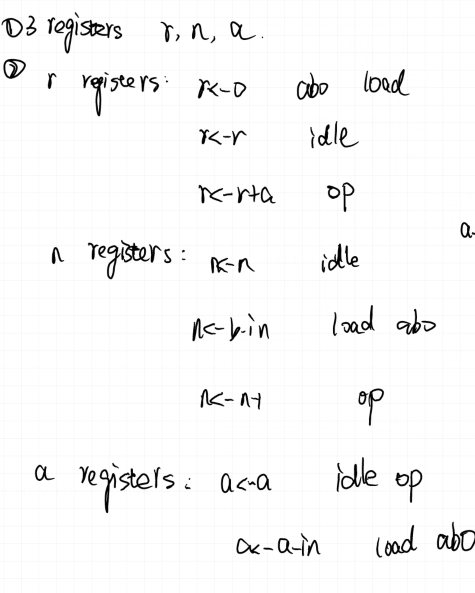 ① 3 registers r, n, a.
② r registers: r<-0 ab0 load
r<-r idle
r<-r+a op
a
n registers: n<-n idle
n<-b-in load ab0
n<-n-1 op
a registers: a<-a idle op
a<-a-in load ab0